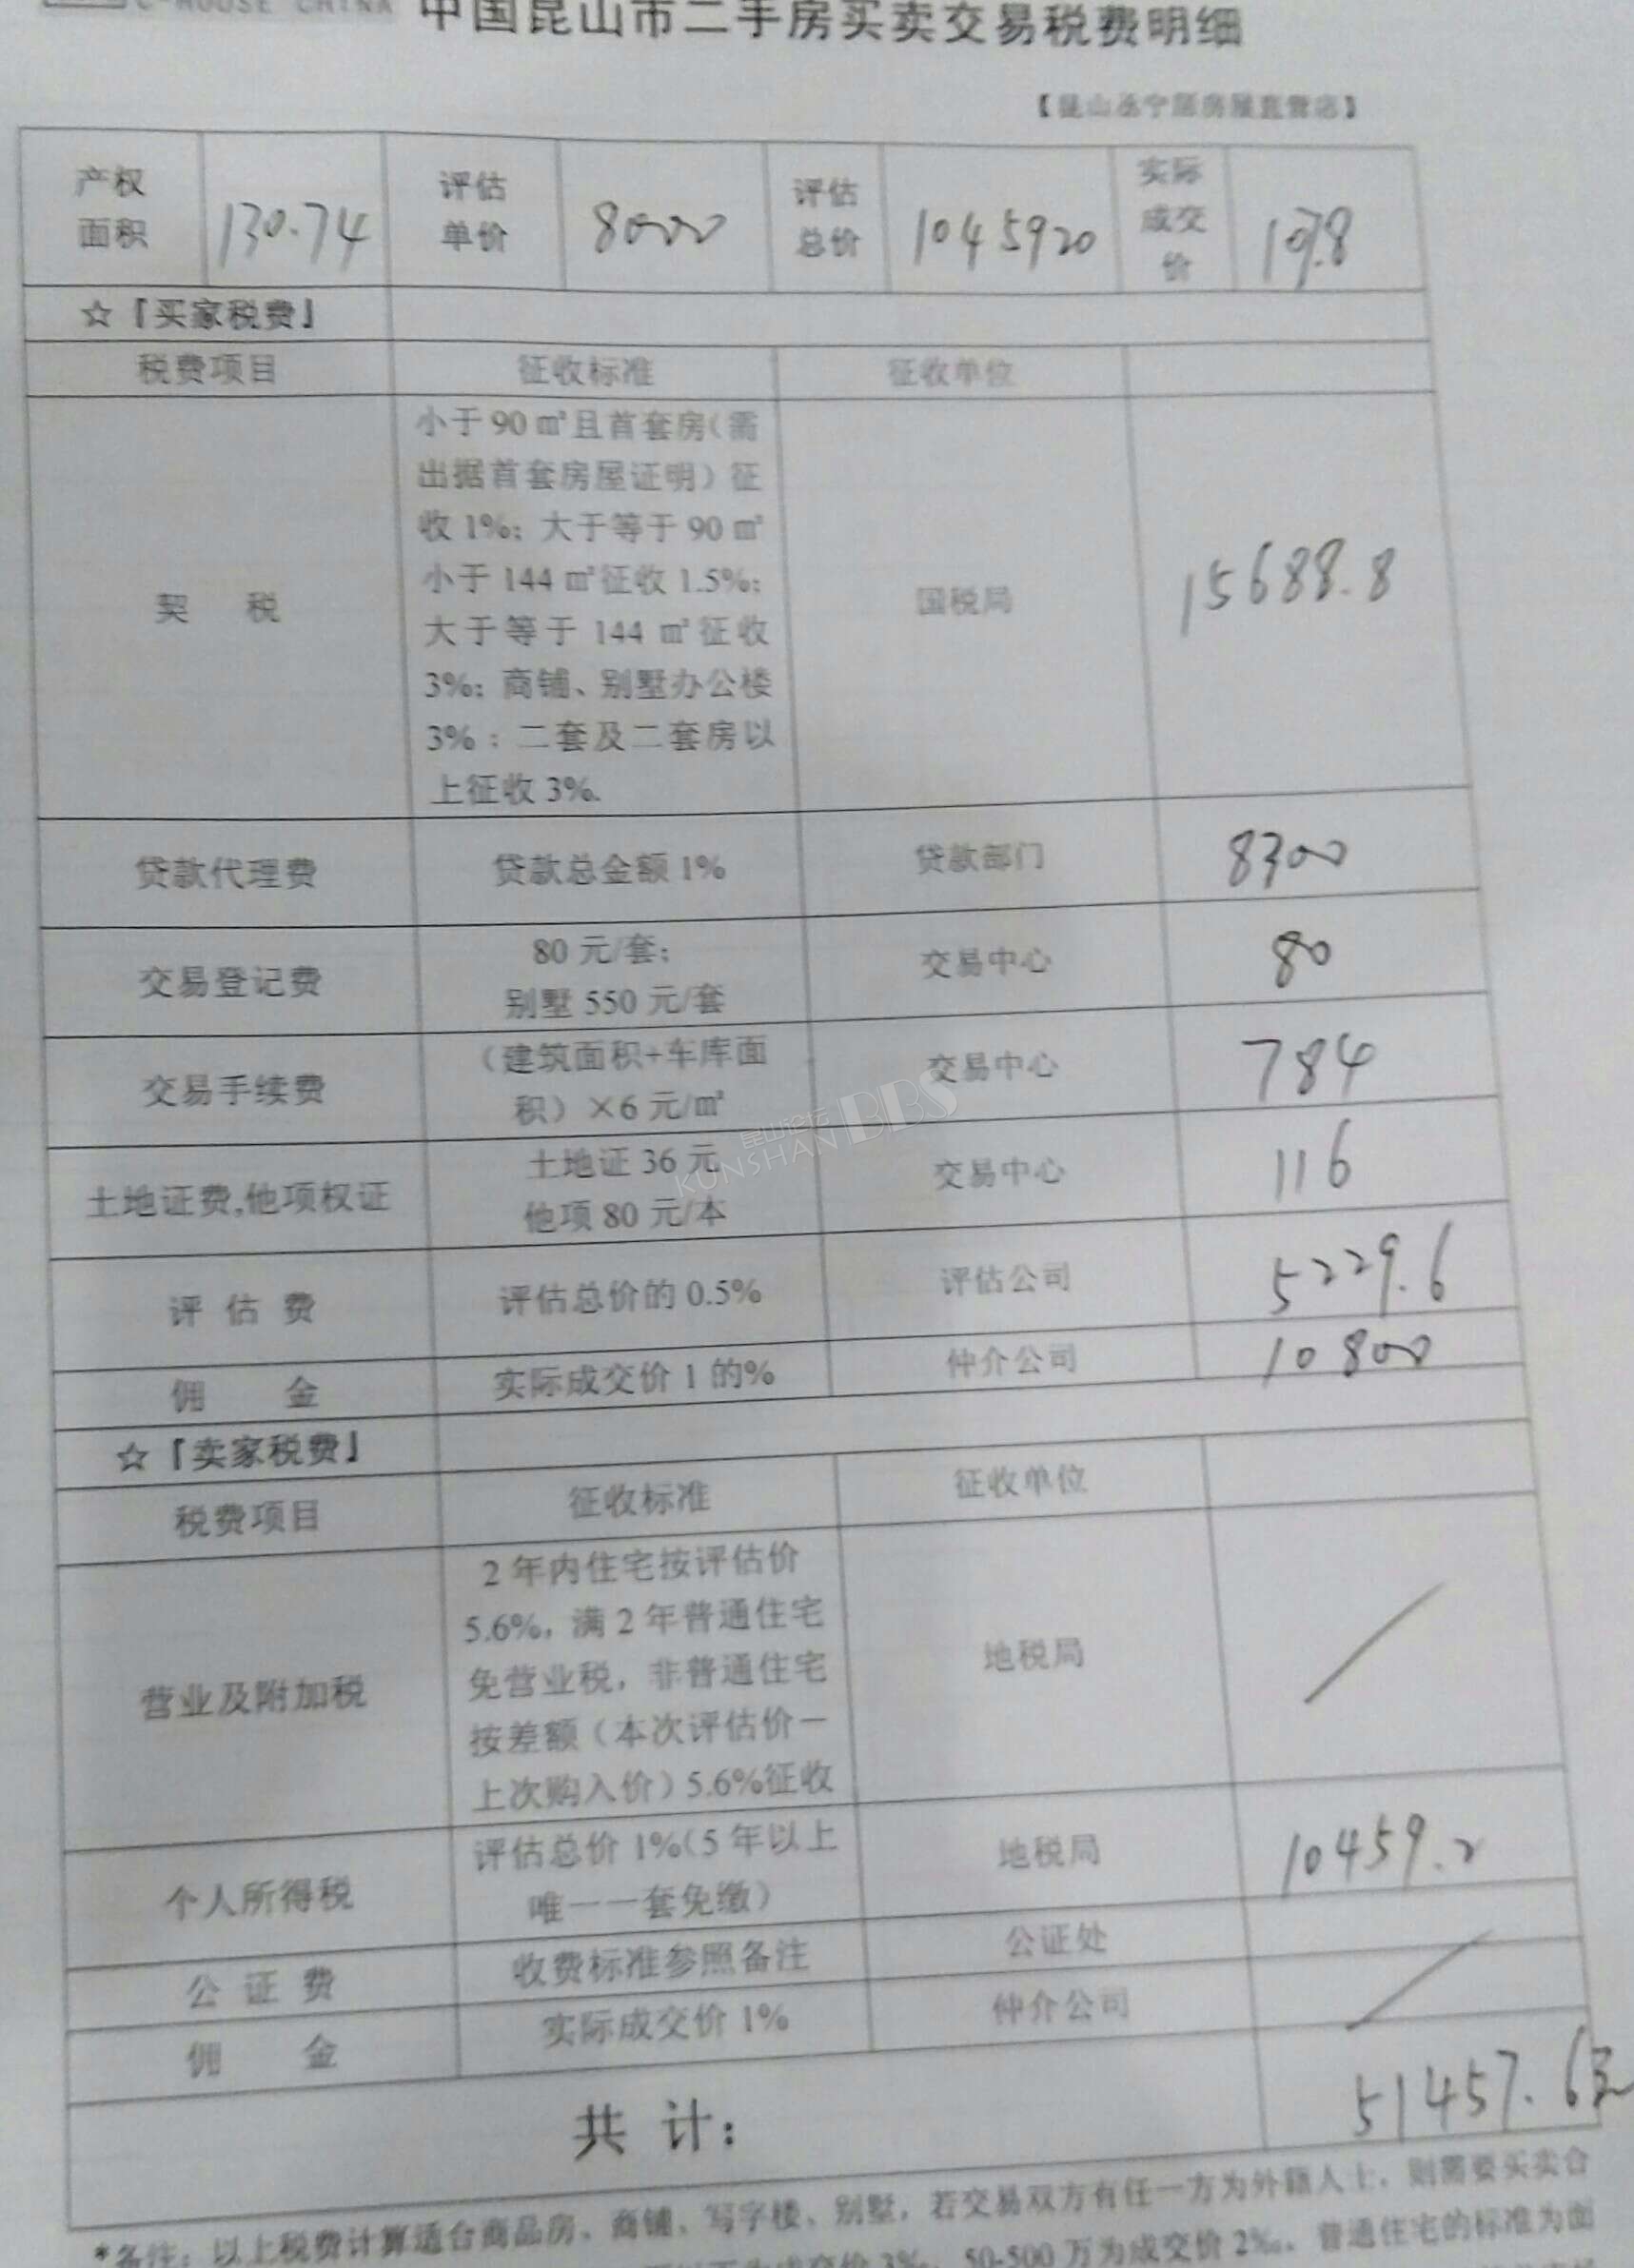 C-HOUSE CHINA 中国昆山市二手房买卖交易税费明细
产权面积 130.74 评估单价 8000 评估总价 1045920 实际成交价
☆「买家税费」
税费项目 征收标准 征收单位
契 税
小于 90 ㎡且首套房(需
出据首套房屋证明)征
收 1%; 大于等于 90 ㎡
小于 144 ㎡征收 1.5%;
大于等于 144 ㎡征收
3%; 商铺、别墅办公楼
3% ; 二套及二套房以
上征收 3%.
国税局
15688.8
贷款代理费 贷款总金额 1% 贷款部门 8300
交易登记费
80 元/套;
别墅 550 元/套
交易中心 80
交易手续费
(建筑面积+车库面
积)×6 元/㎡
交易中心 784
昆山论坛
KUNSHAN BBS
土地证费,他项权证
土地证 36 元
他项 80 元/本
交易中心 116
评 估 费 评估总价的 0.5% 评估公司 5229.6
佣 金 实际成交价 1 的% 仲介公司 10800
☆「卖家税费」
税费项目 征收标准 征收单位
营业及附加税
2 年内住宅按评估价
5.6%, 满 2 年普通住宅
免营业税, 非普通住宅
按差额(本次评估价-
上次购入价)5.6%征收
地税局
个人所得税
评估总价 1%(5 年以上
唯一一套免缴)
地税局 10459.2
公 证 费 收费标准参照备注 公证处
佣 金 实际成交价 1% 仲介公司
共 计: 51457.6
*备注: 以上税费计算适合商品房、商铺、写字楼、别墅, 若交易双方有任一方为外籍人士, 则需要买卖合
为成交价 3‰, 50-500 万为成交价 2‰. 普通住宅的标准为面